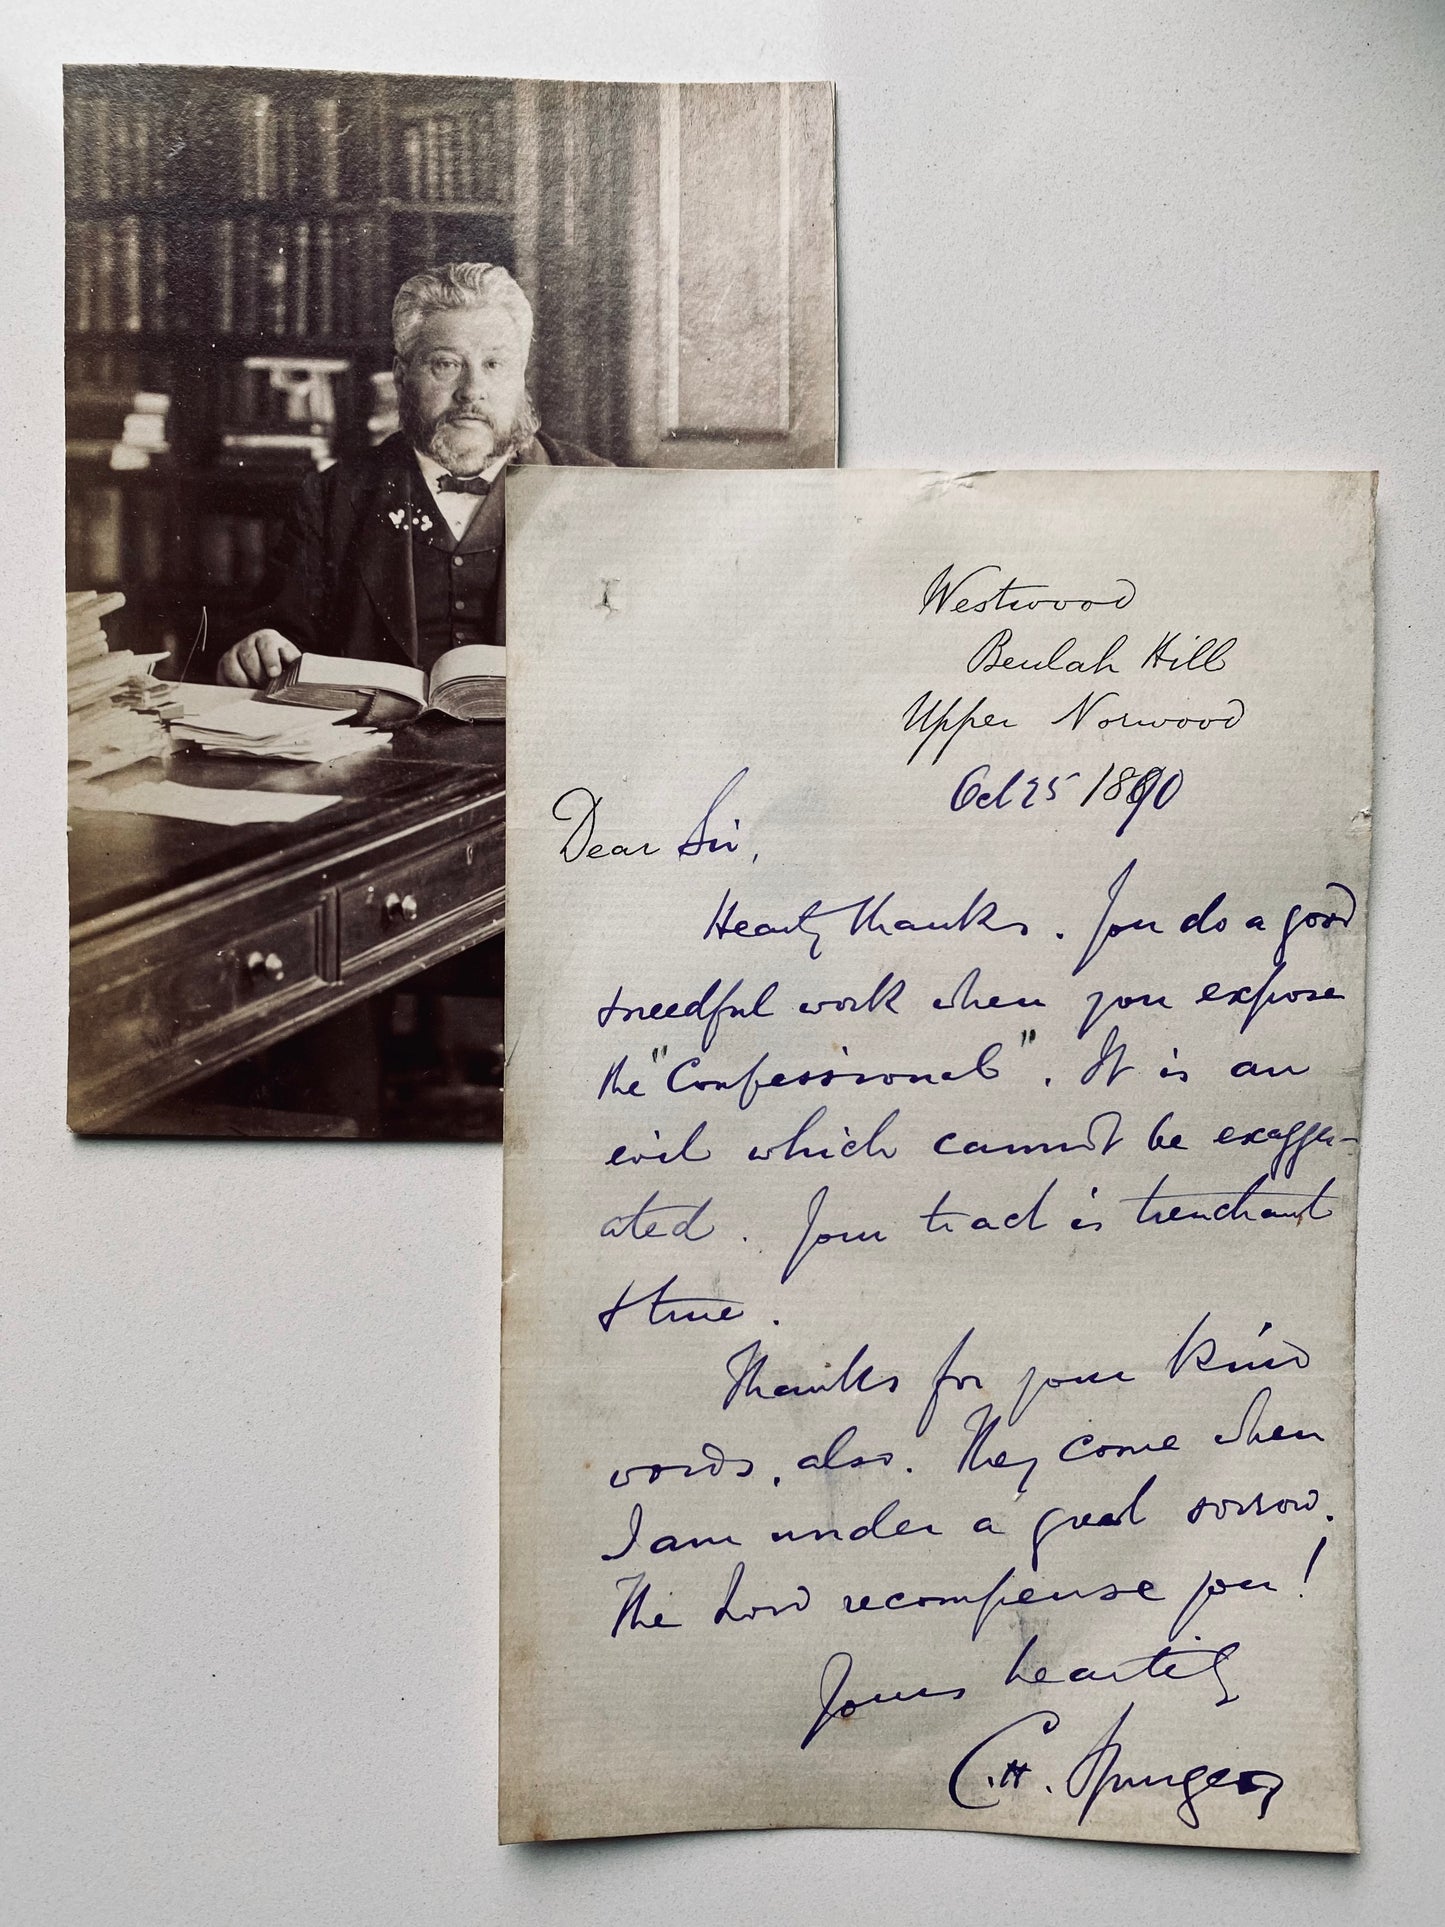 Westwood
Beulah Hill
Upper Norwood
Oct 25 1890
Dear Sir,
Hearty thanks. You do a good
& needful work when you expose
the "Confessional". It is an
evil which cannot be exagger-
ated. Your tract is trenchant
& true.
Thanks for your kind
words, also. They come when
I am under a great sorrow.
The Lord recompense you!
Yours heartily
C. H. Spurgeon